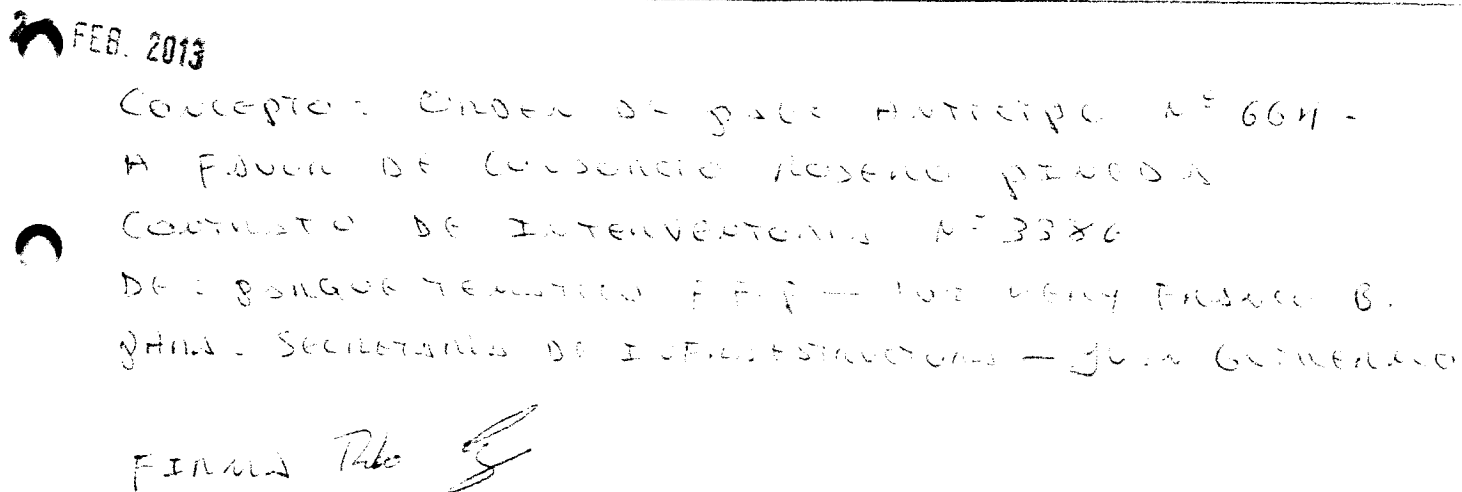 FEB. 2013
CONCEPTO: ORDEN DE PAGO ANTICIPO Nº 664-
A FAVOR DE CONSORCIO MORENO PINEDA
CONTRATO DE INTERVENTORIA Nº 3386
DE: PARQUE TEMATICO F.F.P — LUZ MERY FRANCO B.
PARA: SECRETARIA DE INFRAESTRUCTURA — JUAN GUILLERMO
FIRMA